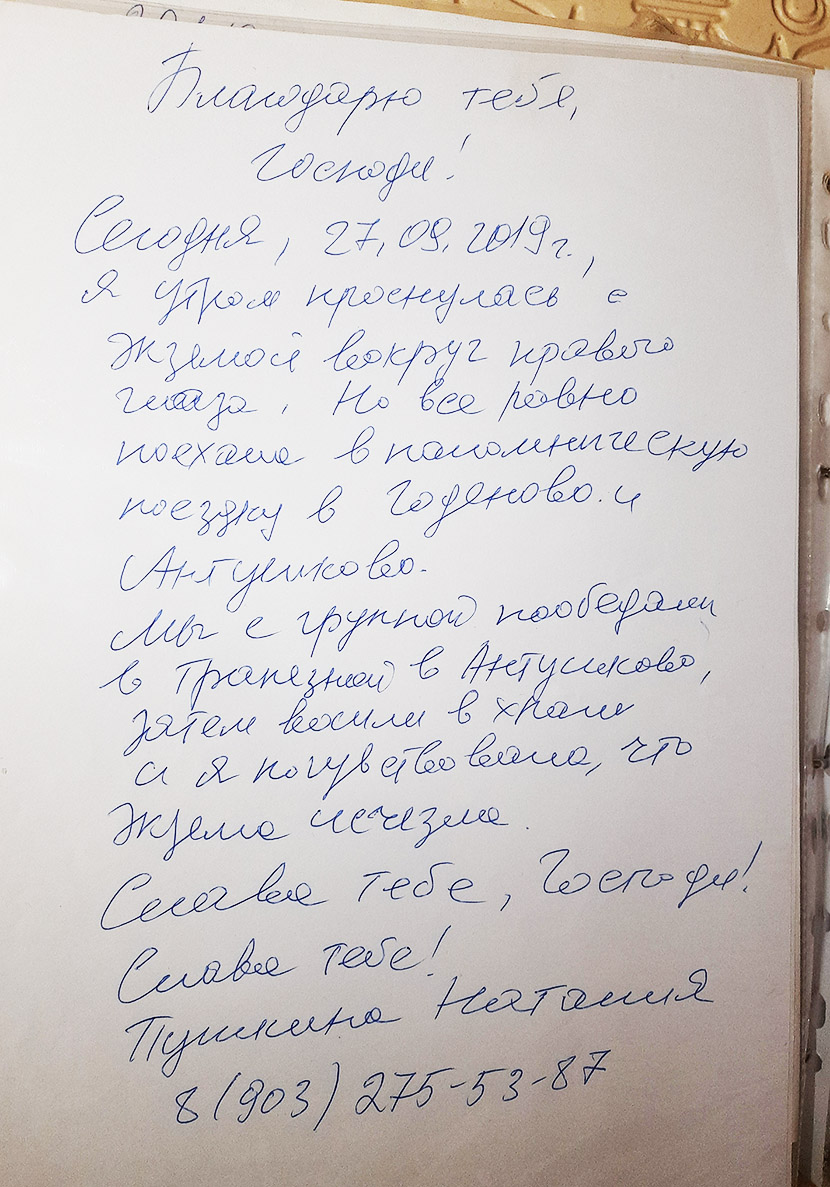 Благодарю тебя,
Господи!
Сегодня, 27.09.2019г.,
я утром проснулась с
экземой вокруг правого
глаза. Но все равно
поехала в паломническую
поездку в Годеново и
Антушково.
Мы с группой пообедали
в трапезной в Антушково,
затем вошли в храм
и я почувствовала, что
экзема исчезла.
Слава тебе, Господи!
Слава тебе!
Пушкина Наталия
8(903) 275-53-87